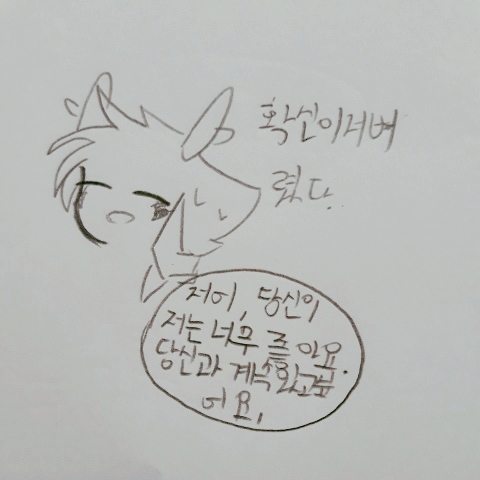 확신이서버
렸다.
저어, 당신이
저는 너무 좋아요.
당신과 계속
어요.